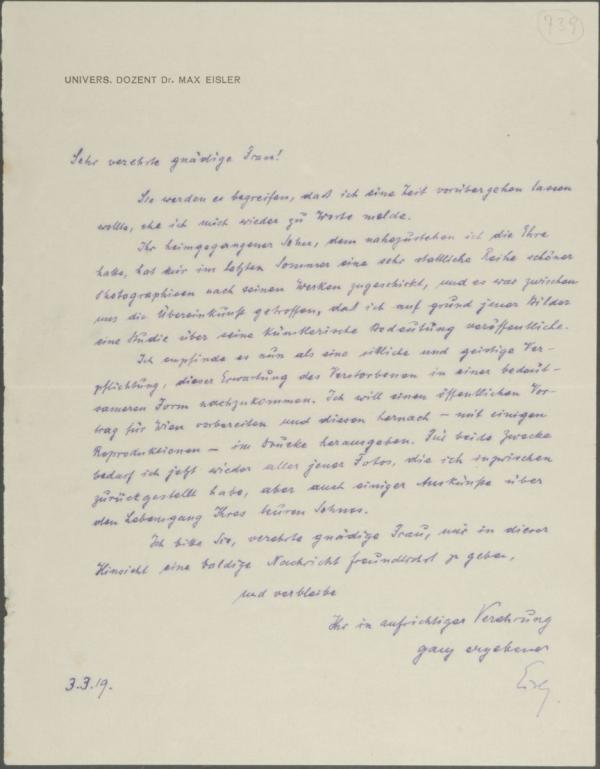 739
UNIVERS. DOZENT Dr. MAX EISLER
Sehr verehrte gnädige Frau!
Sie werden es begreifen, daß ich eine Zeit vorübergehen lassen
wollte, ehe ich mich wieder zu Worte melde.
Ihr heimgegangener Sohn, dem nahezustehen ich die Ehre
hatte, hat mir im letzten Sommer eine sehr stattliche Reihe schöner
Photographieen nach seinen Werken zugeschickt, und es war zwischen
uns die Übereinkunft getroffen, daß ich auf grund jener Bilder
eine Studie über seine künstlerische Bedeutung veröffentliche.
Ich empfinde es nun als eine sittliche und geistige Ver-
pflichtung, dieser Erwartung des Verstorbenen in einer bedeut-
sameren Form nachzukommen. Ich will einen öffentlichen Vor-
trag für Wien vorbereiten und diesen hernach – mit einigen
Reproduktionen – im Drucke herausgeben. Für beide Zwecke
bedarf ich jetzt wieder aller jener Fotos, die ich inzwischen
zurückgestellt habe, aber auch einiger Auskünfte über
den Lebensgang Ihres teuren Sohnes.
Ich bitte Sie, verehrte gnädige Frau, mir in dieser
Hinsicht eine baldige Nachricht freundlichst zu geben,
und verbleibe
Ihr in aufrichtiger Verehrung
ganz ergebener
3.3.19.